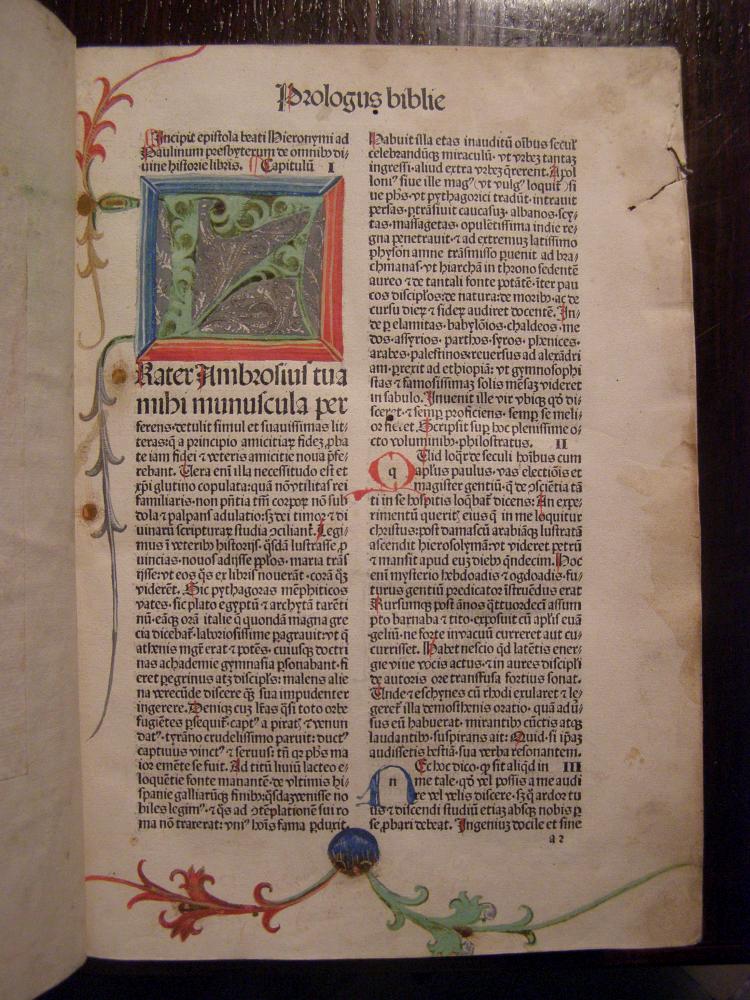 Prologus biblie
Incipit epistola beati Hieronymi ad
Paulinum presbyterum de omnibꝰ di-
uine historie libris. Capitulū I
Frater Ambrosius tua
mihi munuscula per
ferens·detulit simul et suauissimas lit-
teras:q̄ a principio amicitiaꝝ fideꝫ ꝓba
te iam fidei ⁊ veteris amicitie noua p̄fe-
rebant. Uera enī illa necessitudo est et
xp̄i glutino copulata:quā nō vtilitas rei
familiaris·non p̄ntia tm̄ corpoꝝ nō sub
dola ⁊ palpans adulatio:sꝫ dei timor ⁊ di
uinaꝝ scripturaꝝ studia ↄciliant. Legi-
mus ī veteribꝰ historijs· q̄sdā lustrasse ꝓ
uincias·nouos adijsse pp̄los· maria trās
ijsse:vt eos q̄s ex libris nouerāt ·corā q̄ꝫ
viderēt. Sic pythagoras mēphiticos
vates· sic plato egyptū ⁊ archytā tarēti
nū·eāqꝫ orā italie q̄ quondā magna gre
cia dicebat᷑·laboriosissime ꝑagrauit:vt q̄
athenis mgr̄ erat ⁊ potēs· cuiusqꝫ doctri
nas achademie gymnasia ꝑsonabant·fi
eret peregrinus atqꝫ discipl's: malens alie
na verecūde discere q̄ꝫ sua impudenter
ingerere. Deniqꝫ cuꝫ lr̄as q̄si toto orbe
fugiētes ꝑsequit᷑· capt᷒ a pirat᷒ ⁊ venun
dat᷒·tyrāno crudelissimo paruit: duct᷒
captiuus vinct᷒ ⁊ seruus: tn̄ qꝛ phs ma
ior emēte se fuit. Ad titū liuiū lacteo e-
loquētie fonte manantē·de vltimis hi-
spanie galliarūqꝫ finibꝰ:q̄sdā venisse no
biles legim᷒·⁊ q̄s ad ↄtēplationē sui ro
ma nō traxerat: vni᷒ hoīs fama ꝑduxit.
Habuit illa etas inauditū oībus secul'
celebrandūqꝫ miraculū· vt vrbeꝫ tantaꝫ
ingressi·aliud extra vrbeꝫ q̄rerent. Apol
loni᷒ siue ille mag᷒ vt vulg᷒ loquit᷑ si
ue phs· vt pythagorici tradūt·intrauit
persas·ꝑtrāsiuit caucasuꝫ· albanos·scy-
tas·massagetas· opulētissima indie re-
gna penetrauit·⁊ ad extremuꝫ latissimo
physon amne trāsmisso ꝑuenit ad bra-
chmanas·vt hiarchā in throno sedentē
aureo ⁊ de tantali fonte potātē·iter pau
cos discipl'os:de natura:de moribꝰ·ac de
cursu dieꝝ ⁊ sideꝝ audiret docentē. In-
de ꝑ elamitas·babylōios·chaldeos·me
dos·assyrios· parthos·syros· phenices·
arabes·palestinos·reuersus ad alexādri
am·ꝑrexit ad ethiopiā: vt gymnosophi
stas ⁊ famosissimaꝫ solis mēsaꝫ videret
in sabulo. Inuenit ille vir vbiqꝫ qd̄ di-
sceret·⁊ semꝑ proficiens· semꝑ se meli-
or fieret. Scripsit suꝑ hoc plenissime o-
cto voluminibꝰ·philostratus. II
Quid loq̄r de seculi hoībus cum
apl'us paulus· vas electiōis et
magister gentiū·q̄ de ↄsciētia tā
ti in se hospitis loq̄bat᷑ dicens: An expe-
rimentū querit᷑ eius q̄ in me loquitur
christus:post damascū arabiāqꝫ lustratā
ascendit hierosolymā·vt videret petrū
⁊ mansit apud euꝫ diebꝰ q̄ndecim. Hoc
enī mysterio hebdoadis ⁊ ogdoadis·fu-
turus gentiū predicator īstruēdus erat
Rursumqꝫ post ānos q̄ttuordecī assum
pto barnaba ⁊ tito·exposuit cū apl'is euā
geliū·ne forte inuacuū curreret aut cu-
currisset. Habet nescio qd̄ latētis ener-
gie viue vocis actus·⁊ in aures discipl'i
de autoris ore transfusa fortius sonat.
Unde ⁊ eschynes cū rhodi exularet ⁊ le-
geret᷑ illa demosthenis oratio· quā ad ū-
sus eū habuerat·mirantibꝰ cūctis atqꝫ
laudantibꝰ·suspirans ait: Quid·si ip̄aꝫ
audissetis bestiā·sua verba resonantem.
Nec hoc dico·ꝙ sit aliqd̄ in III
me tale·qd̄ vel possis a me audi
re vel velis discere·sꝫ q̄ ardor tu
us ⁊ discendi studiū etiaꝫ absqꝫ nobis ꝑ
se·ꝓbari debeat. Ingeniuꝫ docile et sine
a 2
q
n